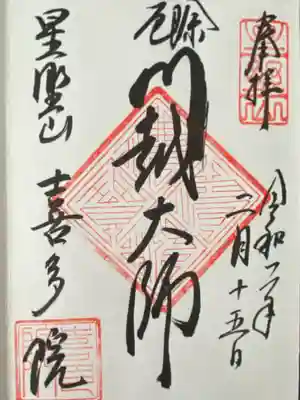 奉拝
令和二年
二月十五日
厄除
川越大師
星埜山
喜多院